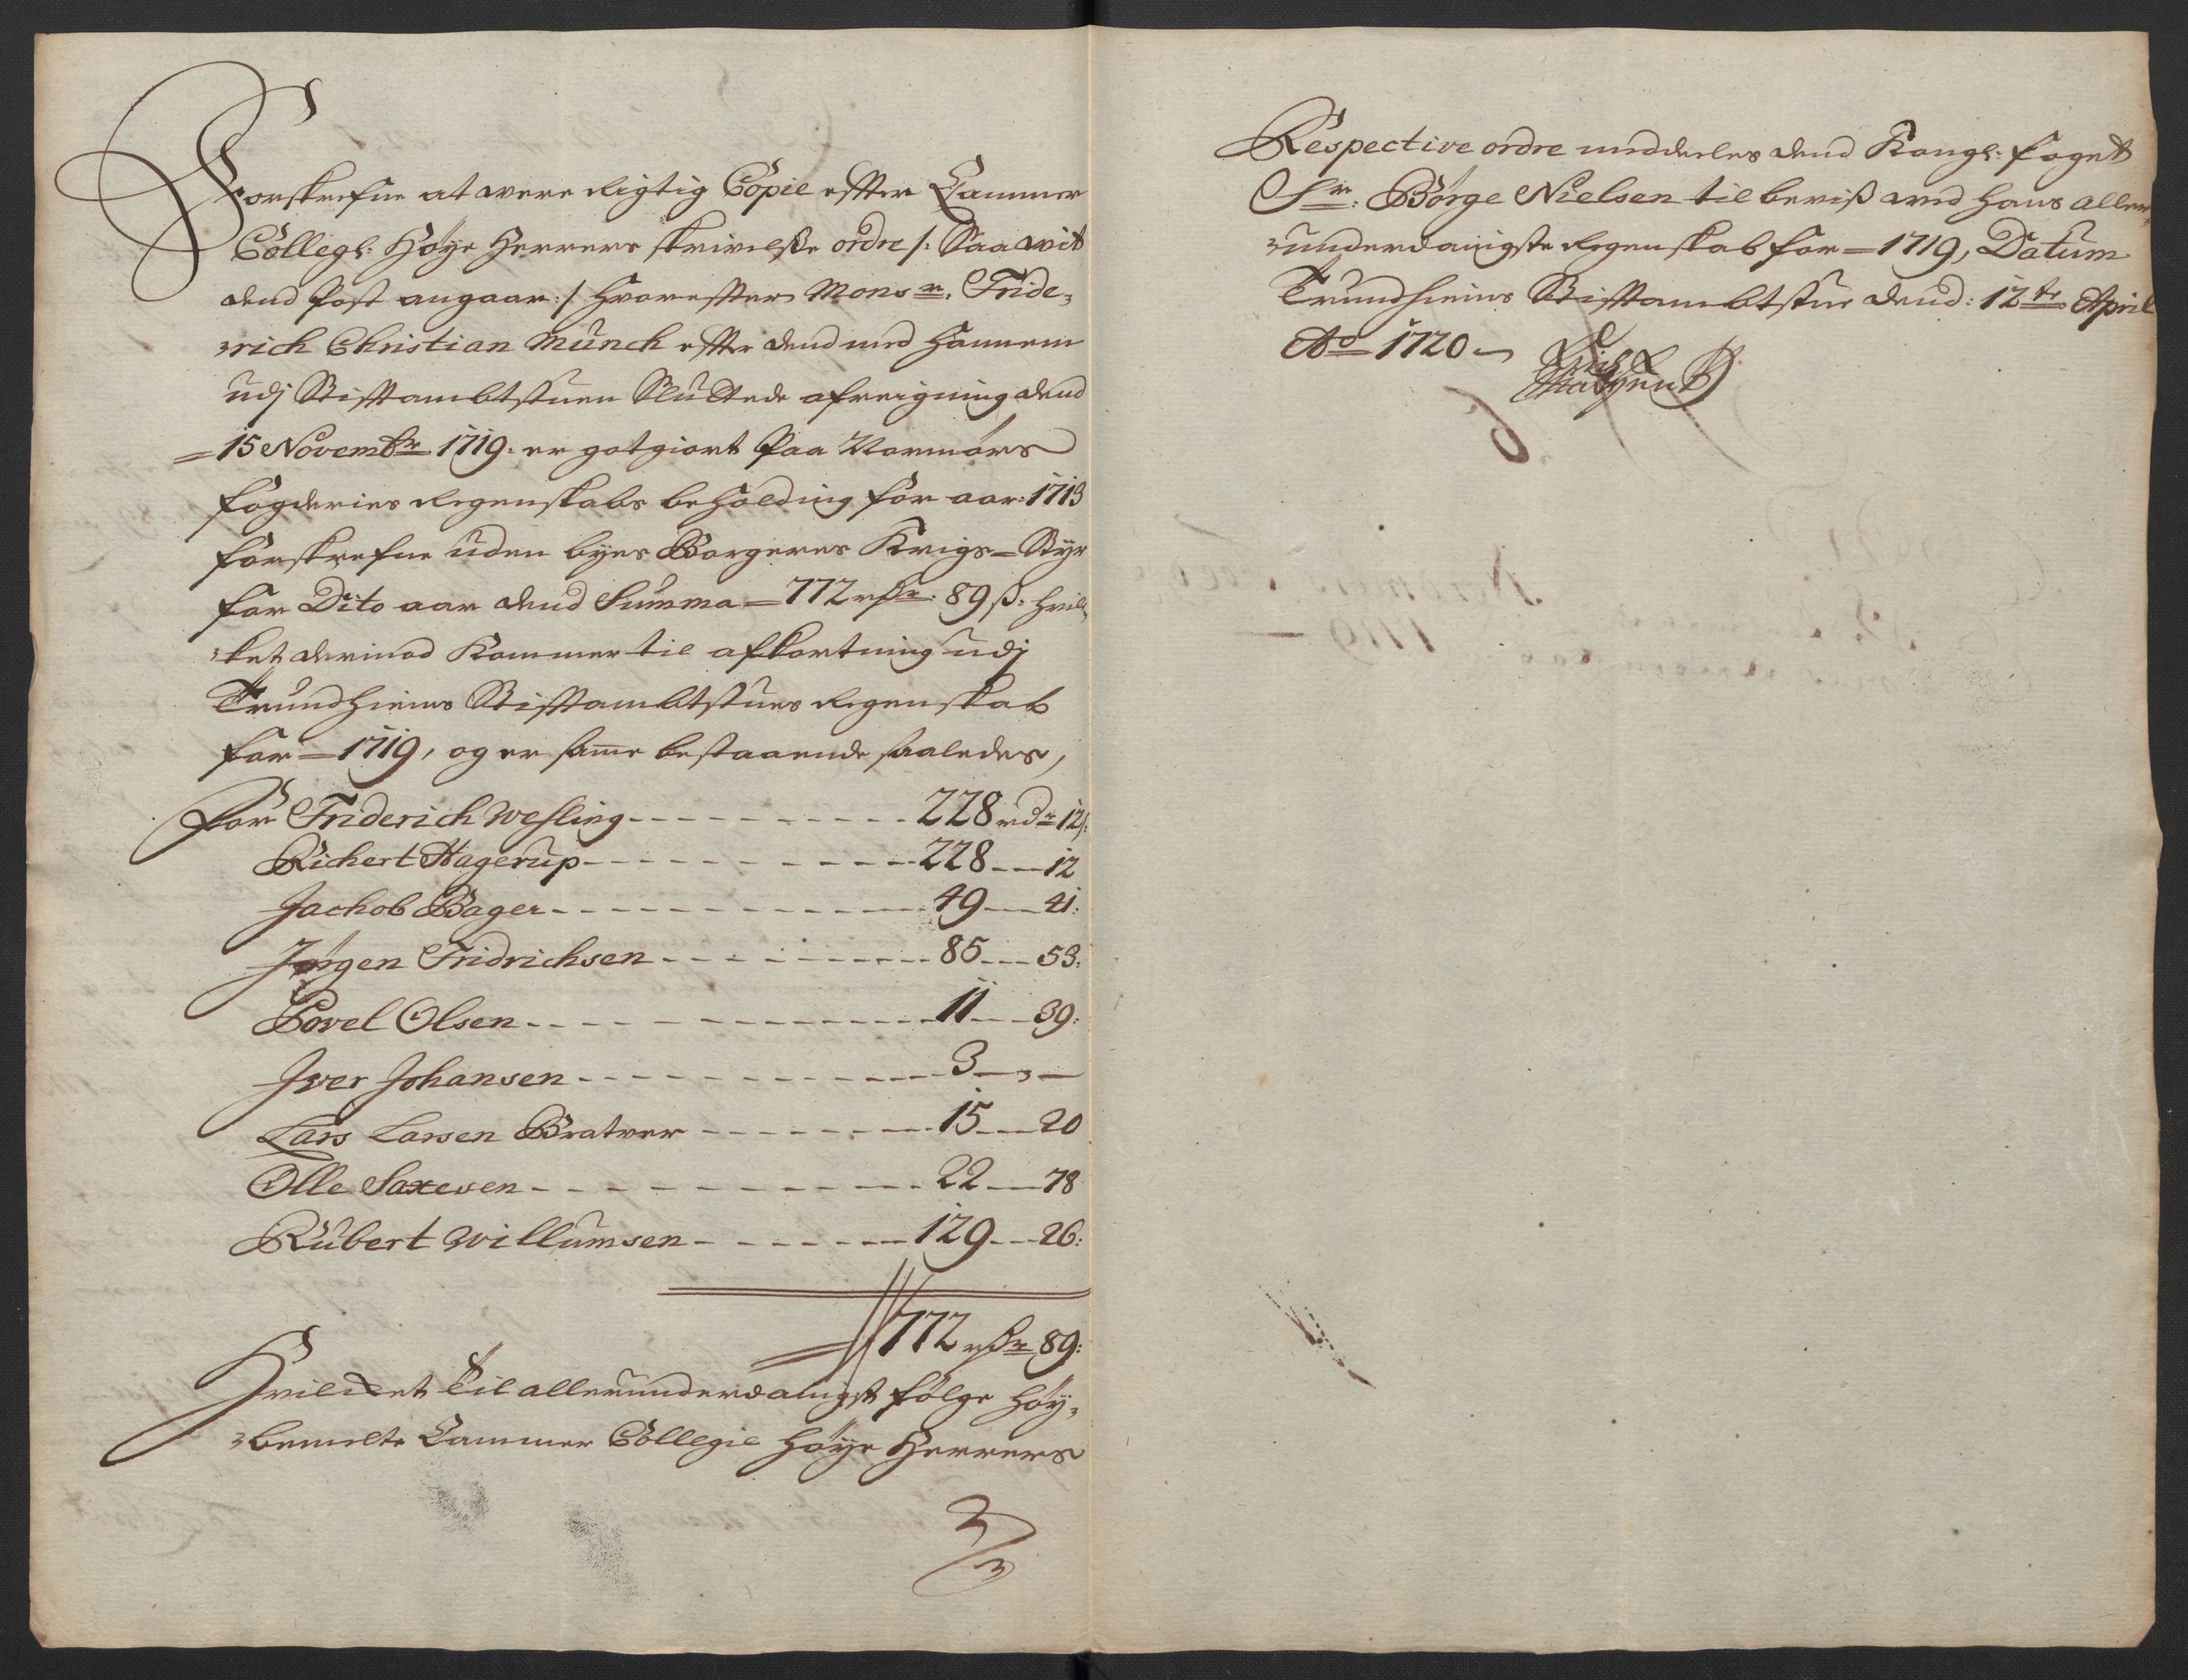 Forskrefne at were Rigtig Copie effter Cammer
Collegl: Høye Herrers skrivelsse ordre /: Saa wit
dend Post angaar :/ Hvoreffter Monsr. Fride„
„rich Christian Münch effter dend med Hannem
udj Stifftambtstuen Sluttede afreigning dend
15 Novembr. 1719: er gotgiort paa Normørs
fogderies Regenskabs beholding for aar: 1713
forskrefne uden byes Borgeres Krigs-Styr
for Dito aar dend Summa 772 rdr: 89 ß: Hvil„
„ket derimod Kommer til afkortning udj
Trundhiems Stifftambtstues Regenskab
for 1719, og er same bestaaende saaledes,
For Friderich Wesling 228 rdr 12 ß:
Richert Hagerup 228 12
Jachob Bager 49 41:
Jørgen Fridrichsen 85 53:
Povel Olsen 11 39:
Iver Johansen 3 „
Lars Larsen Bratver 15 20
Olle Saxesen 22 78
Rubert Willumsen 129 26:
772 rdr 89:
Hvilcket til allerunderdanigst følge Høy„
„bemelte Cammer Collegie Høye Herrers
Respective ordre meddeeles dend Kongl: foget
Sr: Børge Nielsen til beviß ved hans aller„
„underdanigste Regenskab for 1719, Datum
Trundhiems Stifftambtstue dend: 12te April
Ao 1720